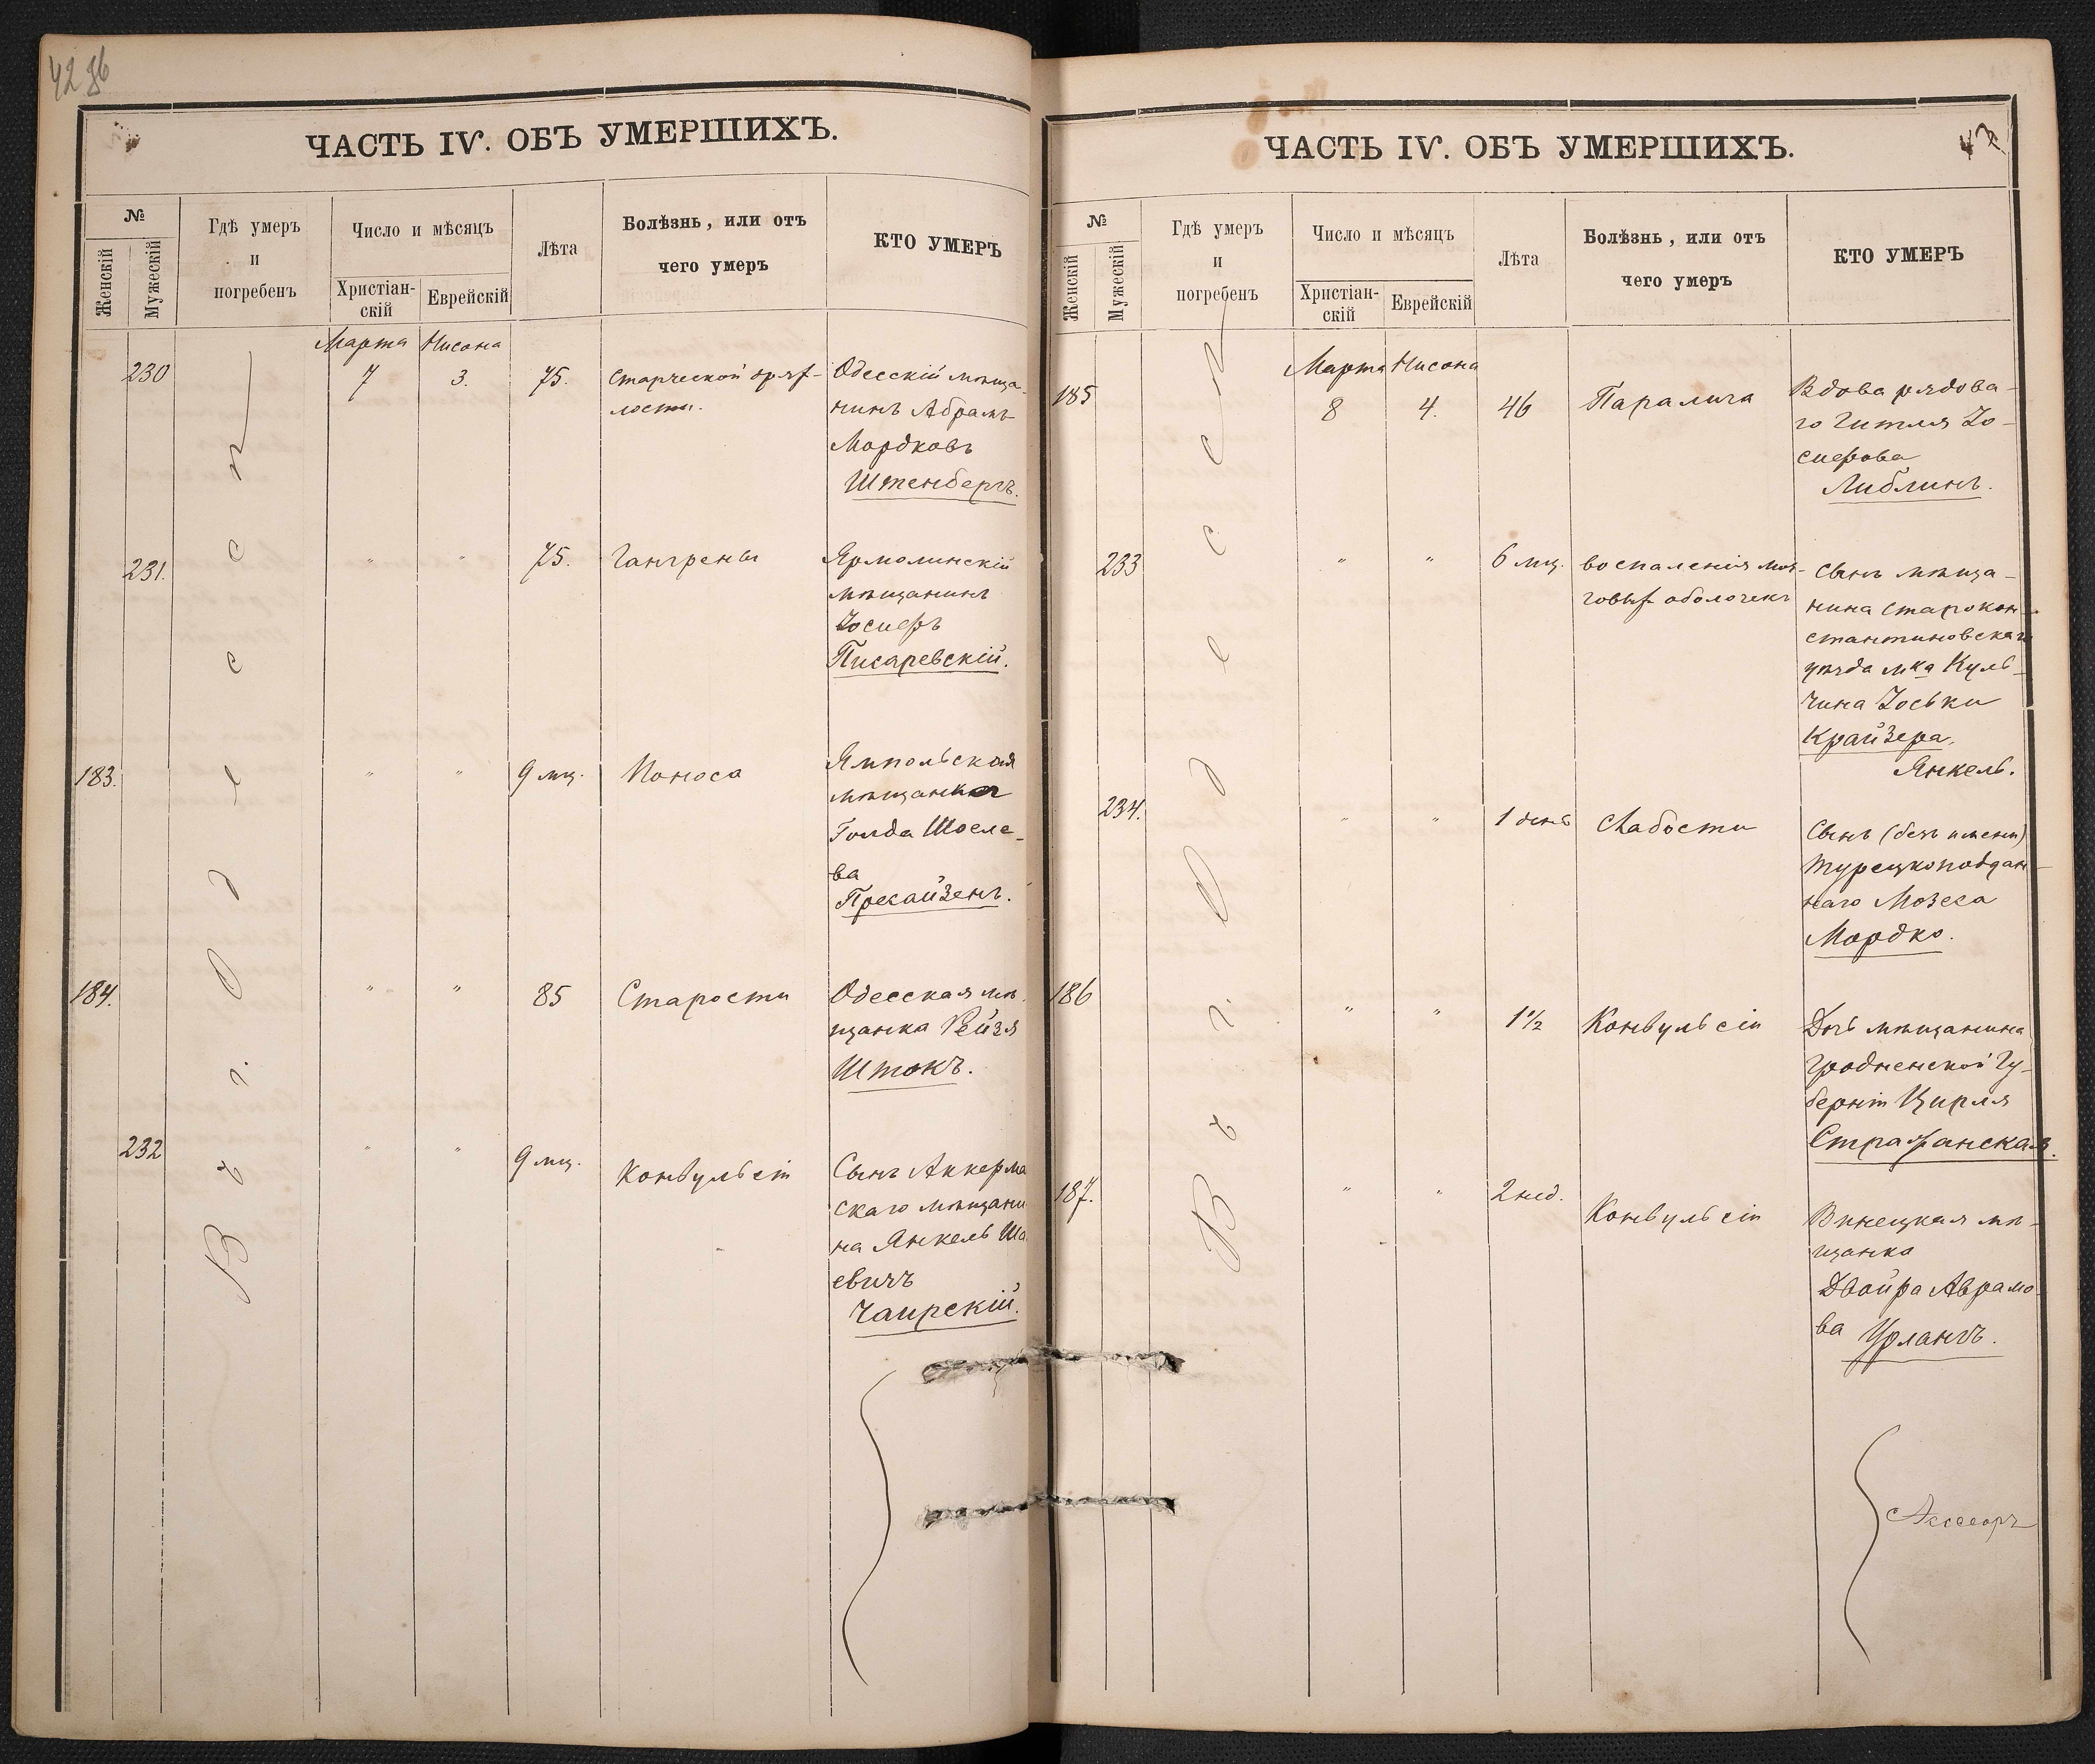 42 36
ЧАСТЬ IV. ОБЪ УМЕРШИХЪ.
№
Женскій
Мужескій
Гдѣ умеръ
и
погребенъ
Число и мѣсяцъ
Христіан-
скій
Еврейскій
Лѣта
Болѣзнь, или отъ
чего умеръ
КТО УМЕРЪ
Марта Нисона
230 7 3. 75. Старческой дрях- Одесскій мѣща-
лости. нинъ Абрамъ
Мордковъ
Штенбергъ.
231. " " 75. Гангрены Ярмолинскій
мѣщанинъ
Іосифъ
Писаревскій.
183. " " 9 мц. Поноса Ямпольская
мѣщанка
Голда Шоеле-
ва
Прегайзенъ.
184. " " 85 Старости Одесская мѣ-
щанка Рейзя
Штокъ.
232 " " 9 мц. Конвульсіи Сынъ Аккерма
скаго мѣщани
на Янкель Ша
евичъ
Чаирскій.
Въ г. Одессѣ
ЧАСТЬ IV. ОБЪ УМЕРШИХЪ.
№
Женскій
Мужескій
Гдѣ умеръ
и
погребенъ
Число и мѣсяцъ
Христіан-
скій
Еврейскій
Лѣта
Болѣзнь, или отъ
чего умеръ
КТО УМЕРЪ
Марта Нисона
185 8 4. 46 Паралича Вдова рядова-
го Гитля Іо-
сифова
Либлинъ.
233 " " 6 мц. воспаленія моз- Сынъ мѣща-
говых оболочекъ нина Старокон-
стантиновскаго
уѣзда мка Куль-
чина Іоськи
Крайзера,
Янкель.
234. " " 1 день Слабости Сынъ (безъ имени)
Турецкоподдан-
наго Мозеса
Мордко.
186 " " 1½ Конвульсіи Дочь мѣщанина
Гродненской Гу-
берніи Цирля
Страханская.
187. " " 2 нед. Конвульсіи Винецкая мѣ-
щанка
Двойра Абрамо-
ва Урлангъ.
Въ г. Одессѣ